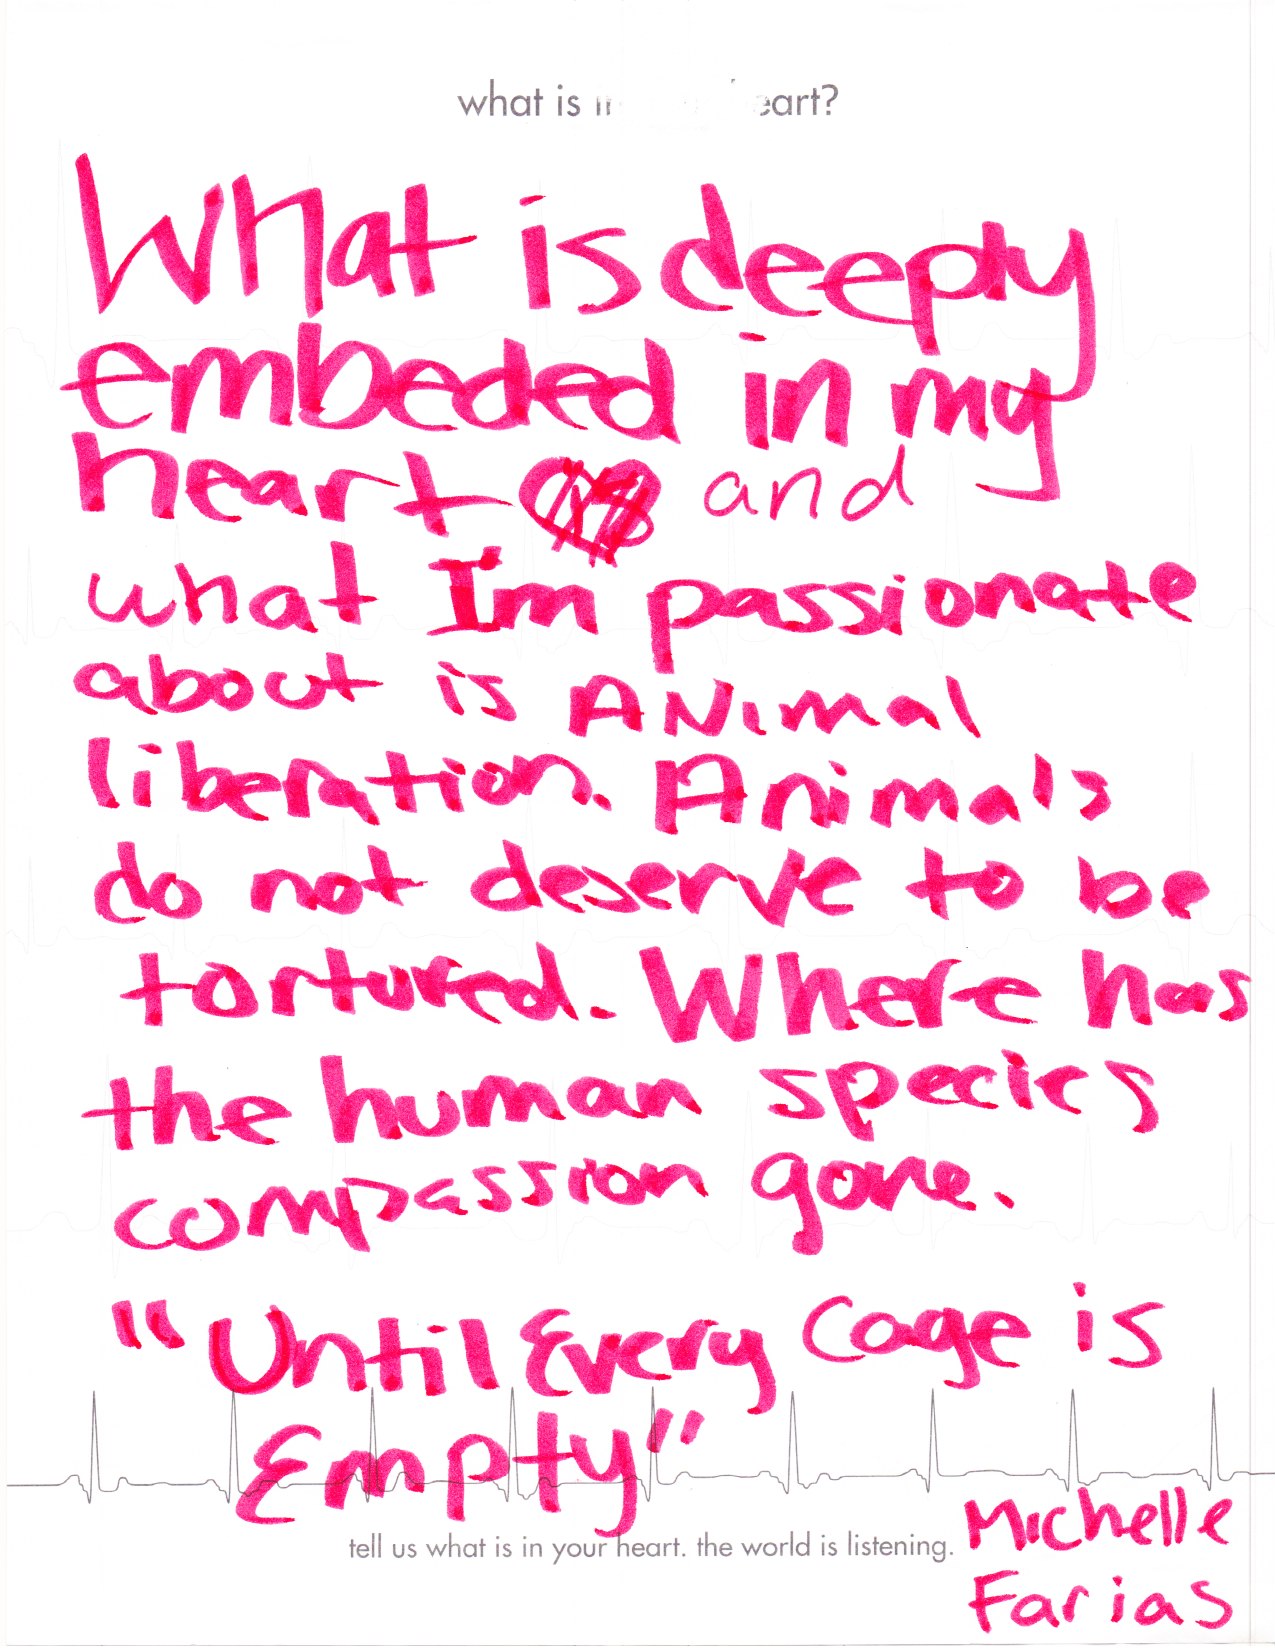 what is heart?
What is deeply
embeded in my
heart and
what Im passionate
about is ANimal
liberation. Animals
do not deserve to be
tortured. Where has
the human species
compassion gone.
"Until Every Cage is
Empty"
tell us what is in your heart. the world is listening.
Michelle
Farias